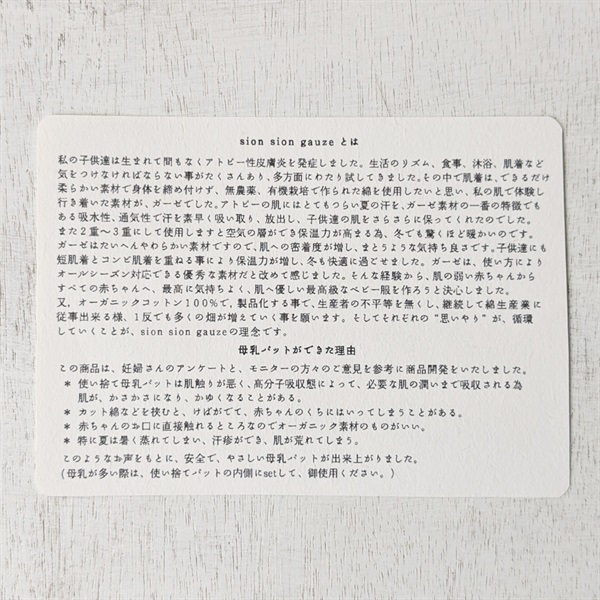 sion sion gauze とは
私の子供達は生まれて間もなくアトピー性皮膚炎を発症しました。生活のリズム、食事、沐浴、肌着など
気をつけなければならない事がたくさんあり、多方面にわたり試してきました。その中で肌着は、できるだけ
柔らかい素材で身体を締め付けず、無農薬、有機栽培で作られた綿を使用したいと思い、私の肌で体験し
行き着いた素材が、ガーゼでした。アトピーの肌にはとてもつらい夏の汗を、ガーゼ素材の一番の特徴でも
ある吸水性、通気性で汗を素早く吸い取り、放出し、子供達の肌をさらさらに保ってくれたのでした。
また2重～3重にして使用しますと空気の層ができ保温力が高まる為、冬でも驚くほど暖かいのです。
ガーゼはたいへんやわらかい素材ですので、肌への密着度が増し、まとうような気持ち良さです。子供達にも
短肌着とコンビ肌着を重ねる事により保温力が増し、冬も快適に過ごせました。ガーゼは、使い方により
オールシーズン対応できる優秀な素材だと改めて感じました。そんな経験から、肌の弱い赤ちゃんから
すべての赤ちゃんへ、最高に気持ちよく、肌へ優しい最高級なベビー服を作ろうと決心しました。
又，オーガニックコットン100％で、製品化する事で、生産者の不平等を無くし、継続して綿生産業に
従事出来る様、1反でも多くの畑が増えていく事を願います。そしてそれぞれの“思いやり”が、循環
していくことが、sion sion gauzeの理念です。
母乳パットができた理由
この商品は、妊婦さんのアンケートと、モニターの方々のご意見を参考に商品開発をいたしました。
＊ 使い捨て母乳パットは肌触りが悪く、高分子吸収態によって、必要な肌の潤いまで吸収される為
肌が、かさかさになり、かゆくなることがある。
＊ カット綿などを挟むと、けばがでて、赤ちゃんのくちにはいってしまうことがある。
＊ 赤ちゃんのお口に直接触れるところなのでオーガニック素材のものがいい。
＊ 特に夏は暑く蒸れてしまい、汗疹ができ、肌が荒れてしまう。
このようなお声をもとに、安全で、やさしい母乳パットが出来上がりました。
（母乳が多い際は、使い捨てパットの内側にsetして、御使用ください。）